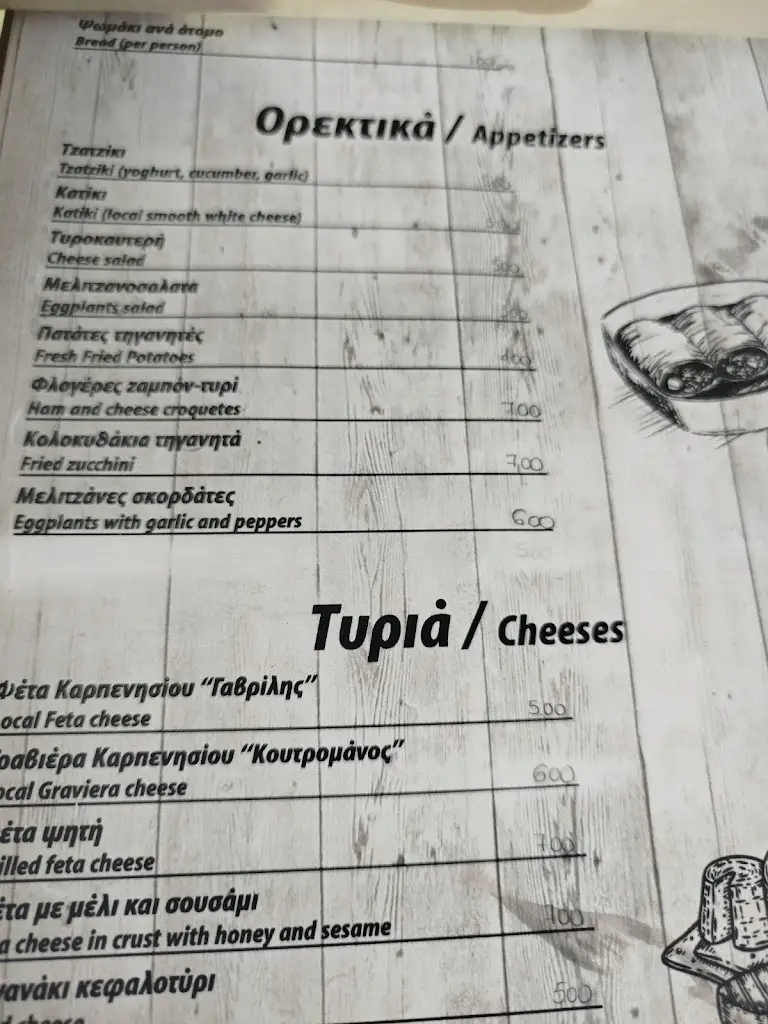 Ψωμάκι ανά άτομο
Bread (per person)
Ορεκτικά / Appetizers
Τζατζίκι
Tzatziki (yoghurt, cucumber, garlic)
Κατίκι
Katiki (local smooth white cheese)
Τυροκαυτερή
Cheese salad
500
Μελιτζανοσαλατα
Eggplants salad
Πατάτες τηγανητές
Fresh Fried Potatoes
400
Φλογέρες ζαμπόν-τυρί
Ham and cheese croquetes
7,00
Κολοκυθάκια τηγανητά
Fried zucchini
7,00
Μελιτζάνες σκορδάτες
Eggplants with garlic and peppers
600
500
Τυριά / Cheeses
Φέτα Καρπενησίου “Γαβρίλης”
ocal Feta cheese
500
ραβιέρα Καρπενησίου “Κουτρομάνος”
ocal Graviera cheese
600
έτα ψητή
illed feta cheese
700
έτα με μέλι και σουσάμι
a cheese in crust with honey and sesame
700
γανάκι κεφαλοτύρι
500
cheese